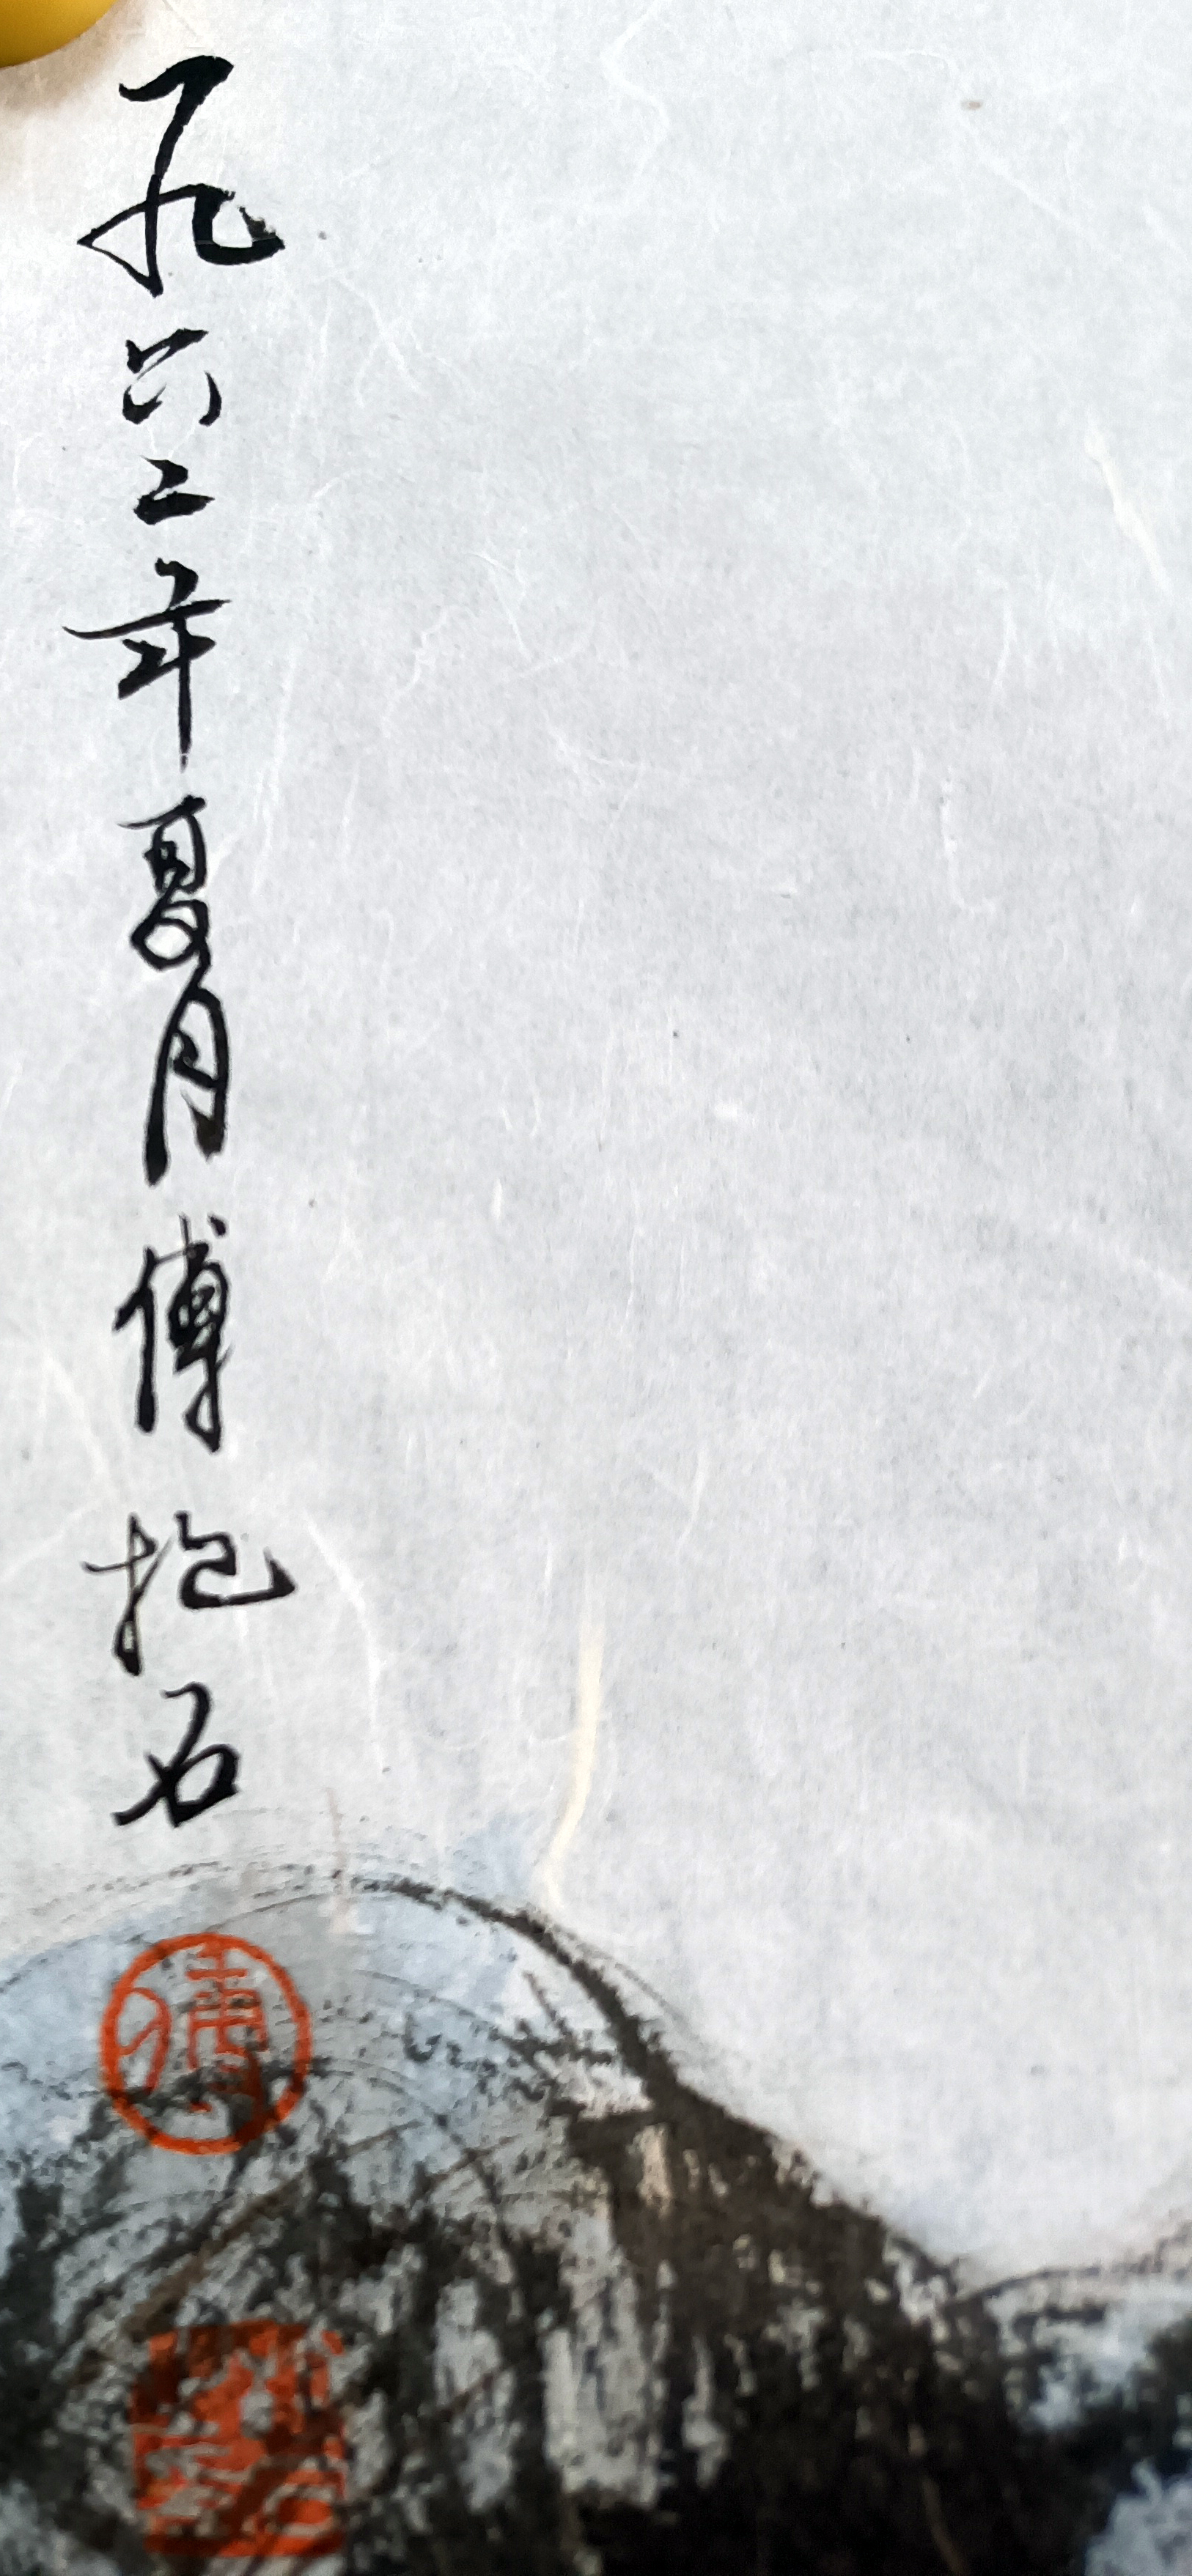 一九六二年夏月傅抱石
傅